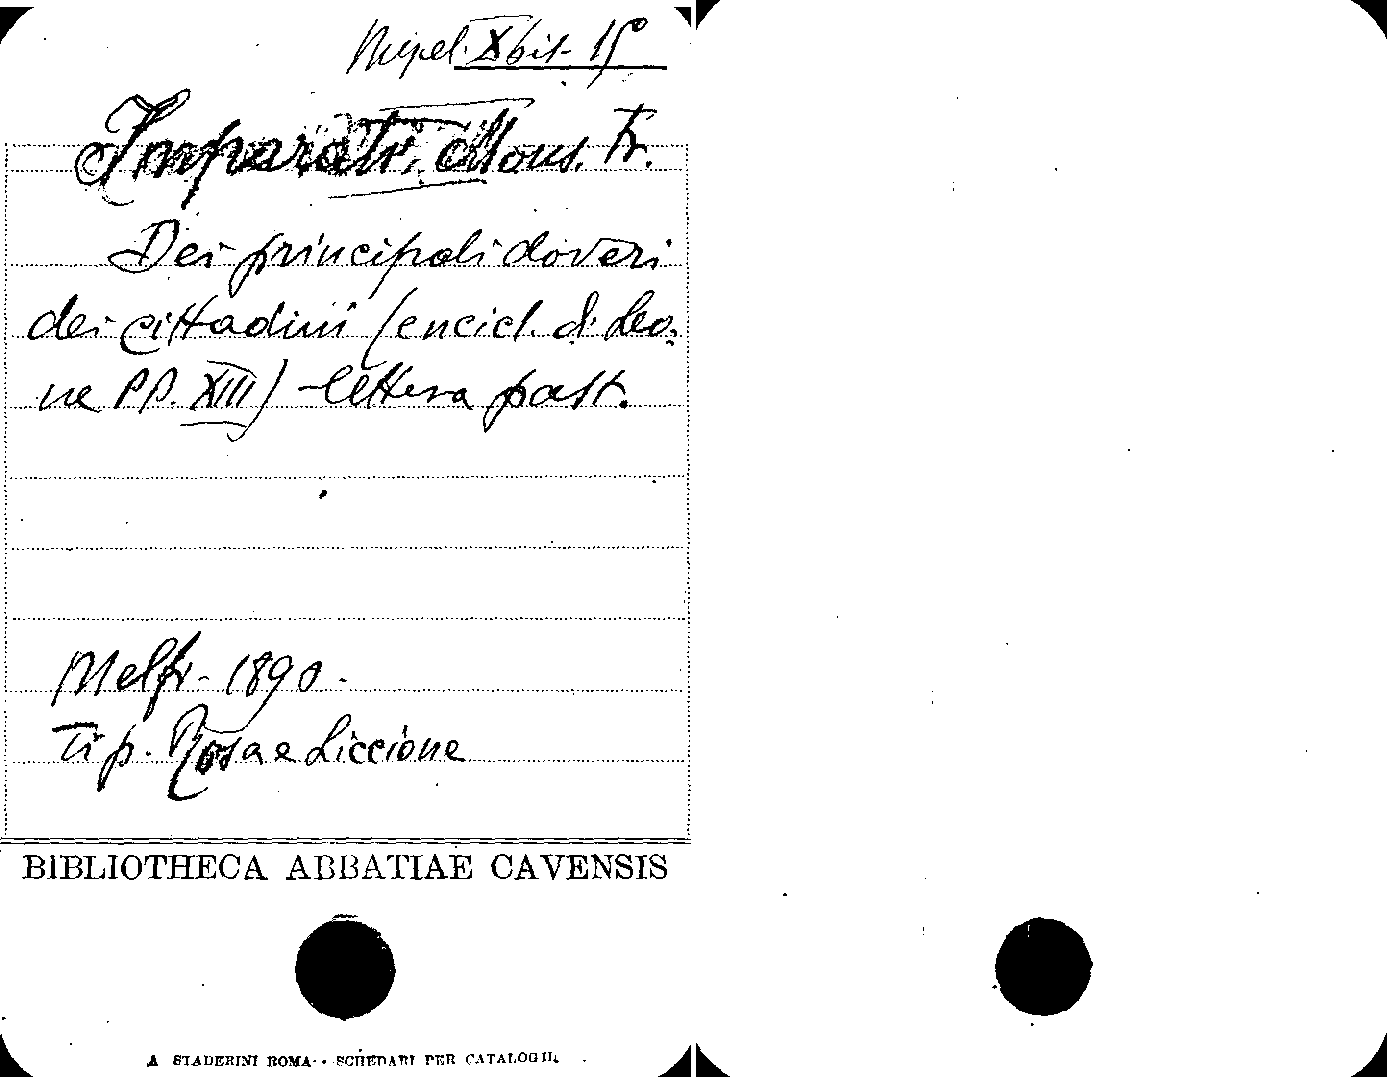 Mipel. X bis- 15
Imparati. Mons. Fr.
Dei principali doveri
dei cittadini (encicl. di Leo-
ne PP. XIII) - lettera past.
Melfi - 1890 -
Tip. Rosa e Liccione
BIBLIOTHECA ABBATIAE CAVENSIS
A STADERINI ROMA - SCHEDARI PER CATALOGHI